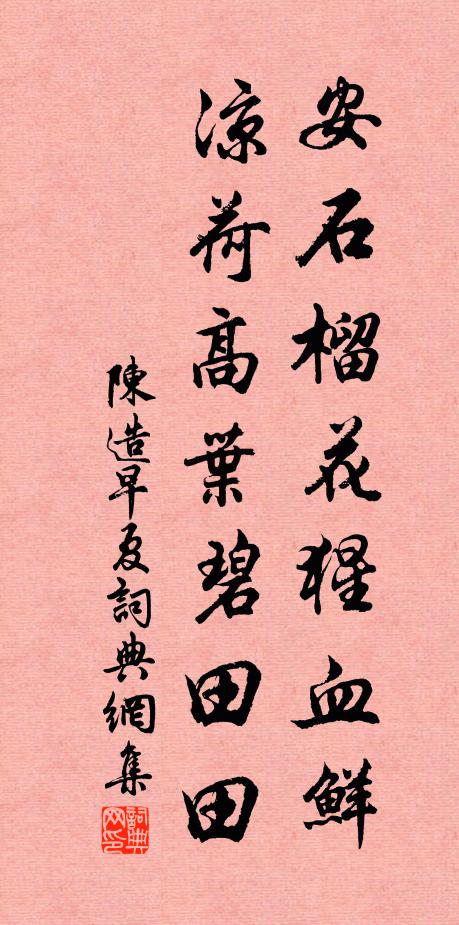 安石榴花猩血鮮
涼荷高葉碧田田
陳造早夏詞典網集
詞典網印